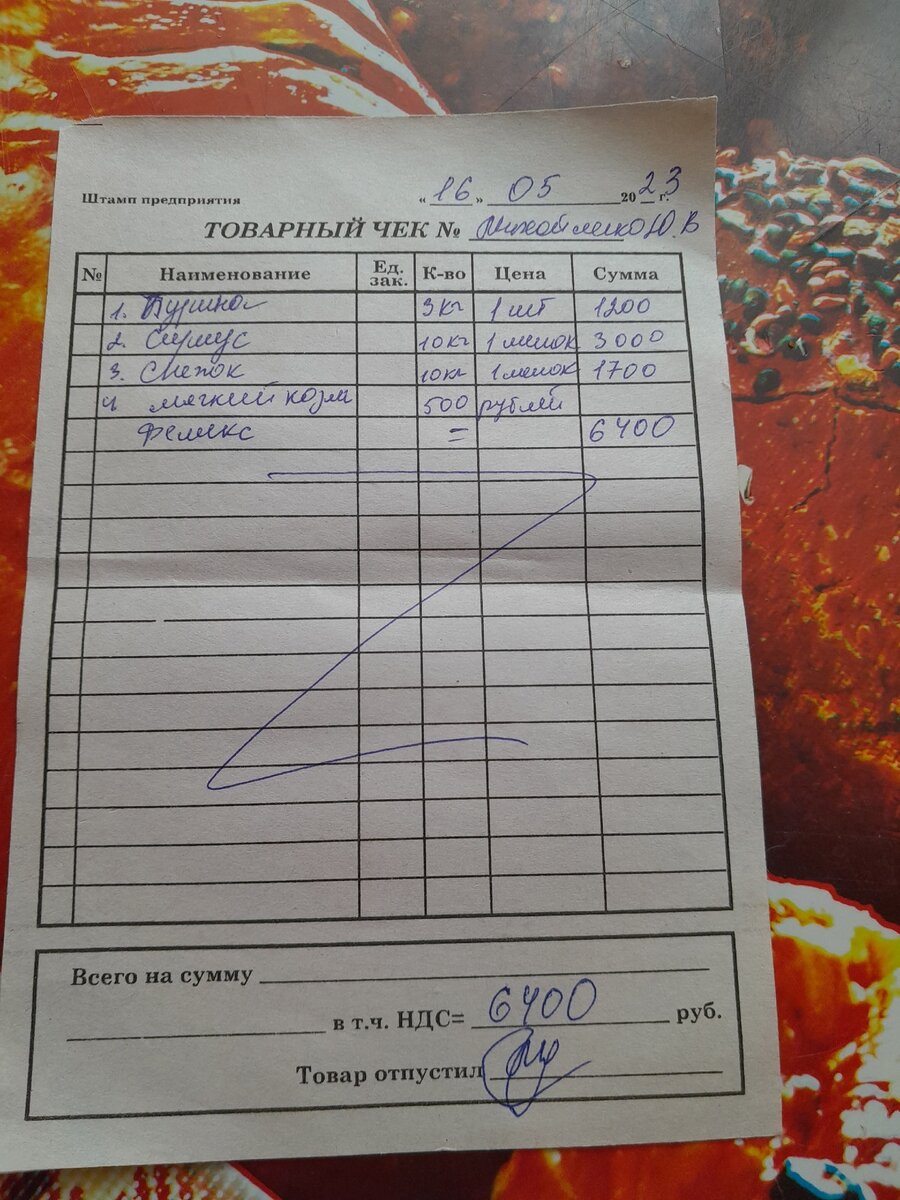 Штамп предприятия « 16 » 05 20 23 г.
ТОВАРНЫЙ ЧЕК № Ю.В
№ Наименование Ед. зак. К-во Цена Сумма
1. Пурина 3кг 1 шт 1200
2. Сириус 10кг 1 мешок 3000
3. Снежок 10кг 1 мешок 1700
4 мягкий корм 500 рублей
Феликс = 6400
Всего на сумму
в т.ч. НДС= 6400 руб.
Товар отпустил